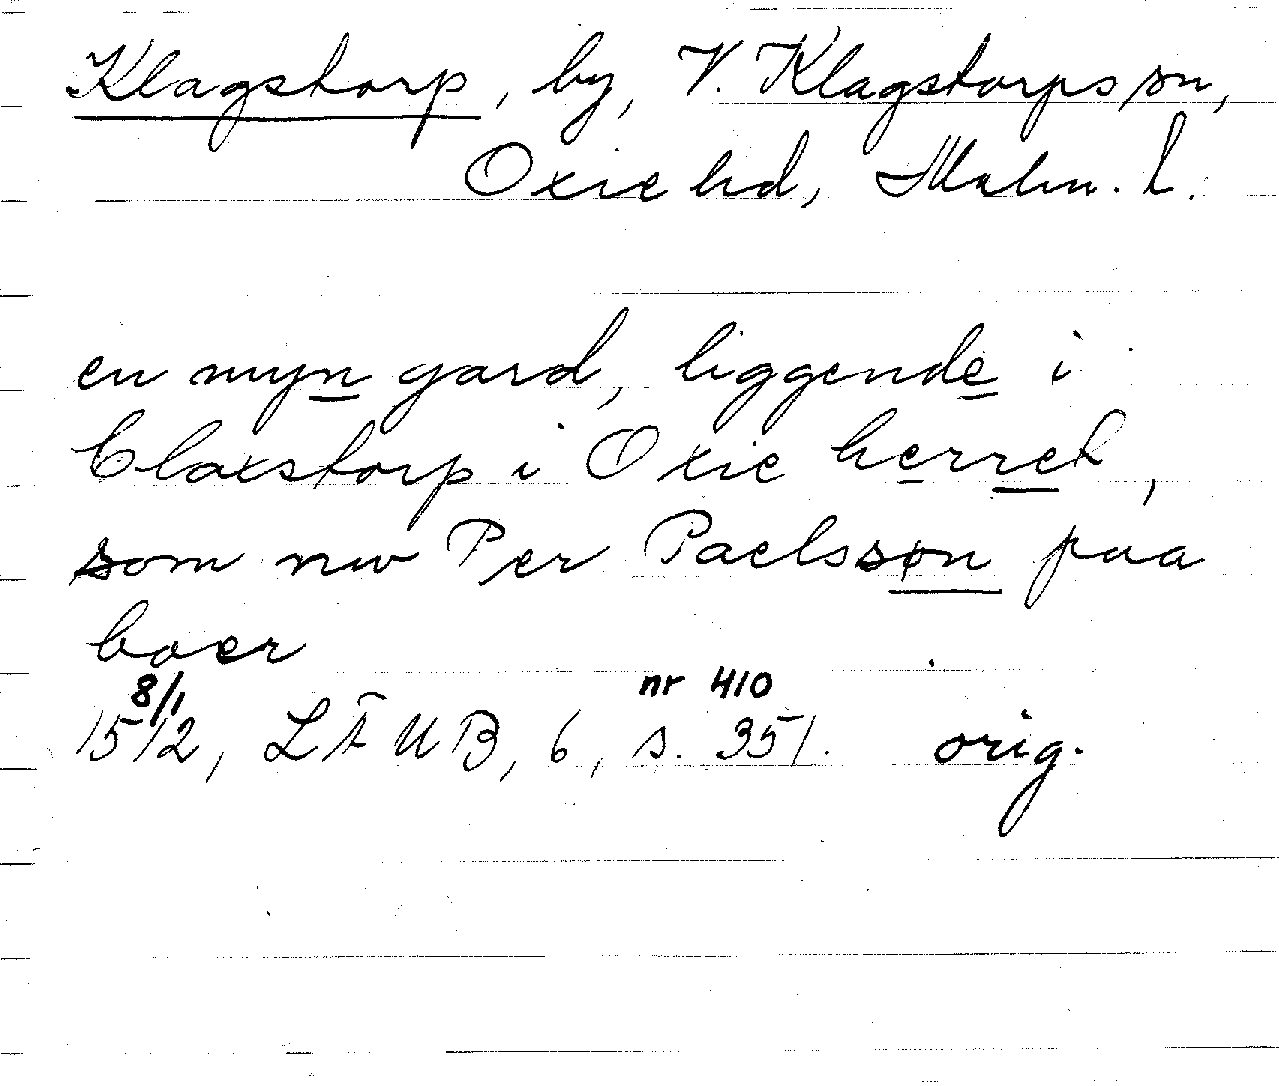 Klagstorp, by, V. Klagstorps sn,
Oxie hd, Malm. l.
en myn gard, liggende i
Claxstorp i Oxie herret,
som nw Per Paelssøn paa
boer
8/1 nr 410
1512, LÄUB, 6, s. 351. orig.